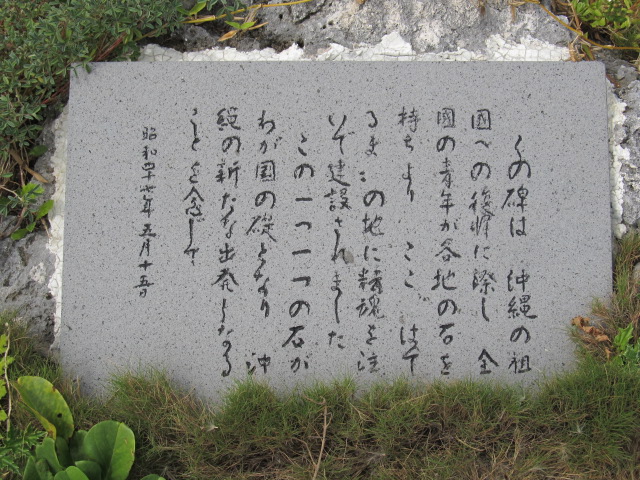 この碑は 沖縄の祖
国への復帰に際し 全
國の青年が各地の石を
持ちより ここ はて
るまの地に精魂を注
いで建設されました
この一つ一つの石が
わが国の礎となり 沖
縄の新たな出発となる
ことを念じて
昭和四十七年五月十五日